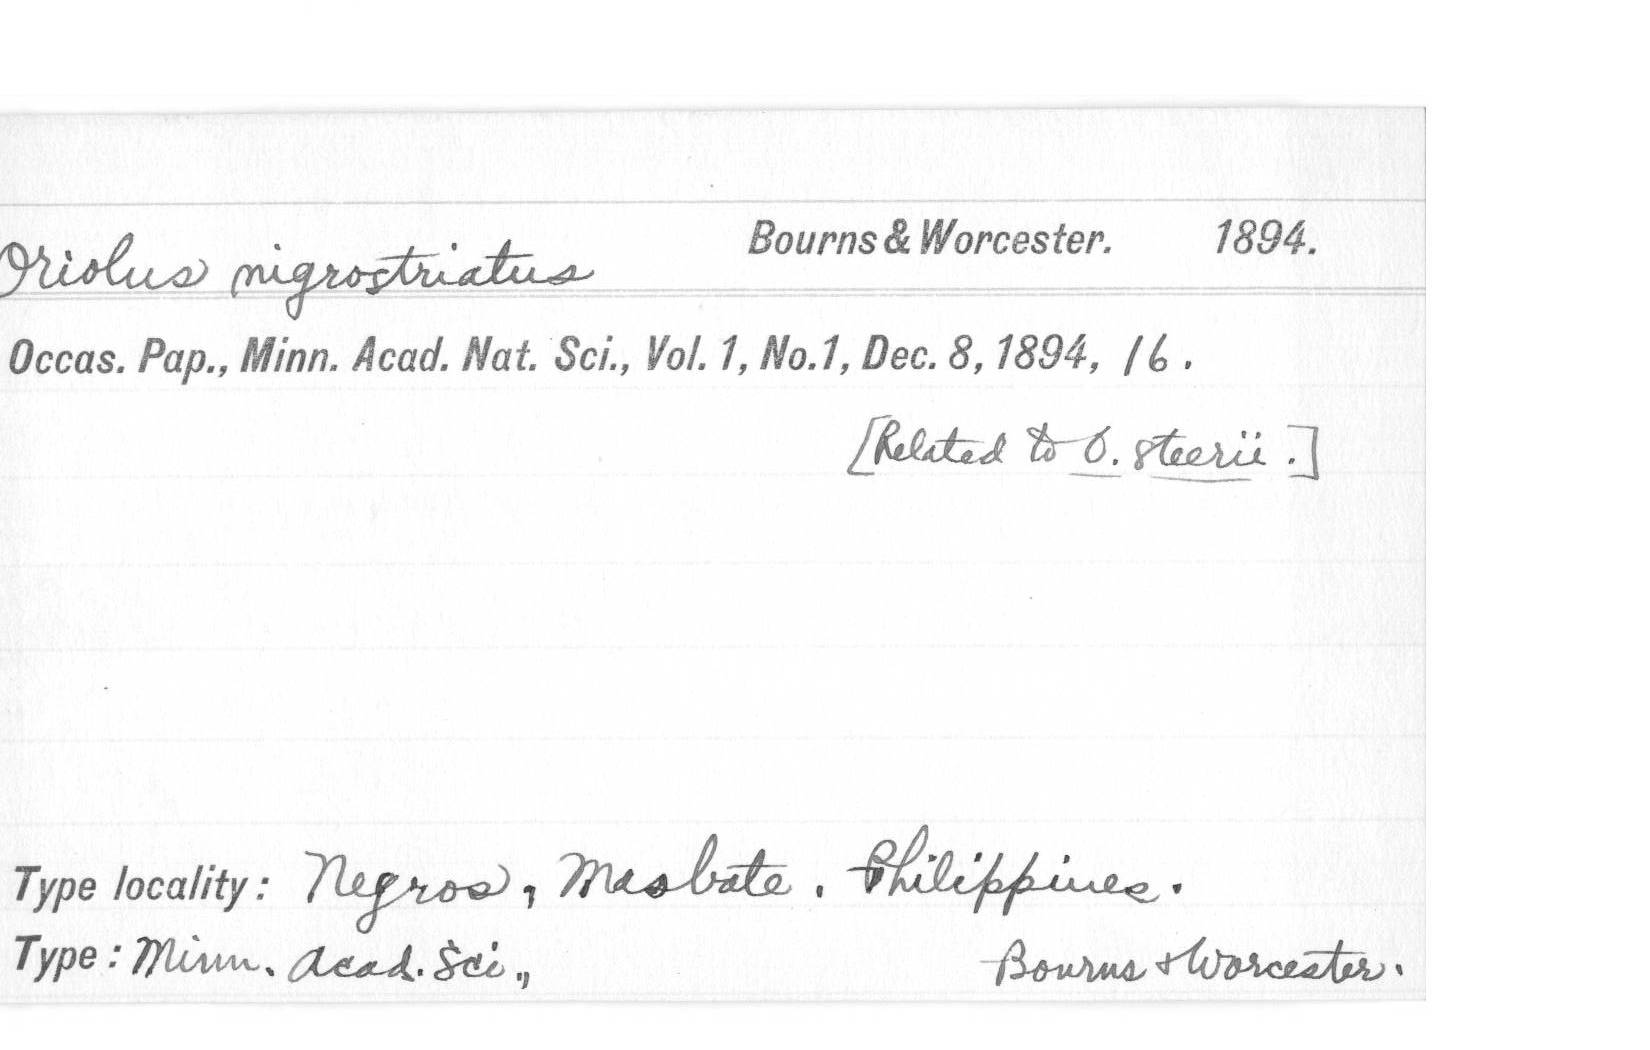 Oriolus nigrostriatus Bourns & Worcester. 1894.
Occas. Pap., Minn. Acad. Nat. Sci., Vol. 1, No.1, Dec. 8, 1894, 16.
[Related to O. steerii.]
Type locality: Negros, Masbate. Philippines.
Type: Minn. Acad. Sci., Bourns & Worcester.